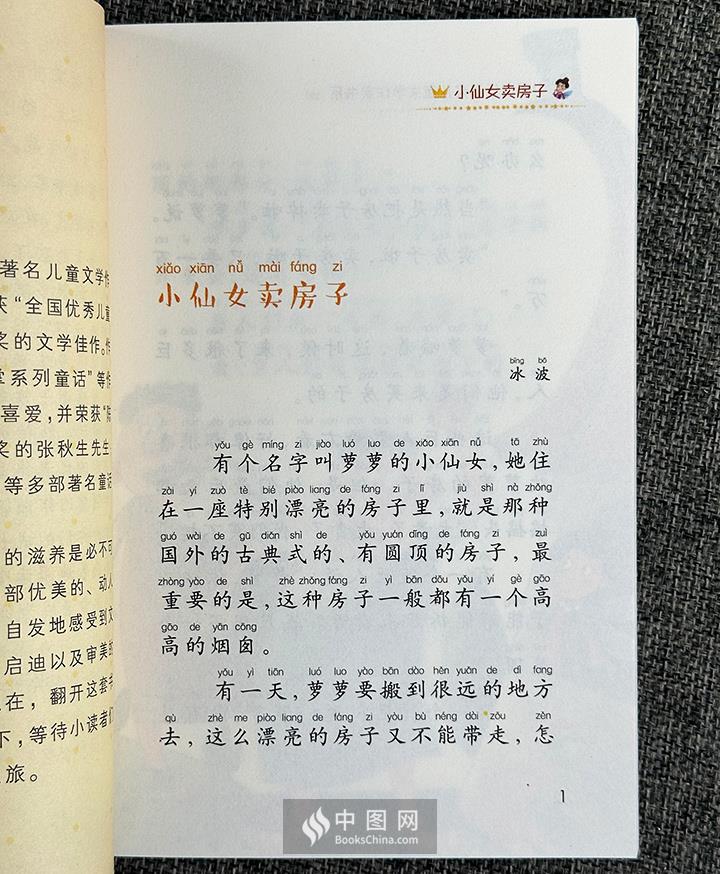 著名儿童文学作
获“全国优秀儿童
奖的文学佳作。作
掌系列童话”等作
喜爱，并荣获“陈
奖的张秋生先生
等多部著名童话
的滋养是必不可
部优美的、动人
自发地感受到文
启迪以及审美的
在，翻开这套书
下，等待小读者们
旅。
小仙女卖房子
xiǎo xiān nǚ mài fáng zi
小仙女卖房子
bīng bō
冰波
yǒu gè míng zi jiào luó luo de xiǎo xiān nǚ tā zhù
有个名字叫萝萝的小仙女，她住
zài yí zuò tè bié piào liang de fáng zi lǐ jiù shì nà zhǒng
在一座特别漂亮的房子里，就是那种
guó wài de gǔ diǎn shì de yǒu yuán dǐng de fáng zi zuì
国外的古典式的、有圆顶的房子，最
zhòng yào de shì zhè zhǒng fáng zi yì bān dōu yǒu yí gè gāo
重要的是，这种房子一般都有一个高
gāo de yān cōng
高的烟囱。
yǒu yì tiān luó luo yào bān dào hěn yuǎn de dì fang
有一天，萝萝要搬到很远的地方
qù zhè me piào liang de fáng zi yòu bù néng dài zǒu zěn
去，这么漂亮的房子又不能带走，怎
1
中图网
BooksChina.com